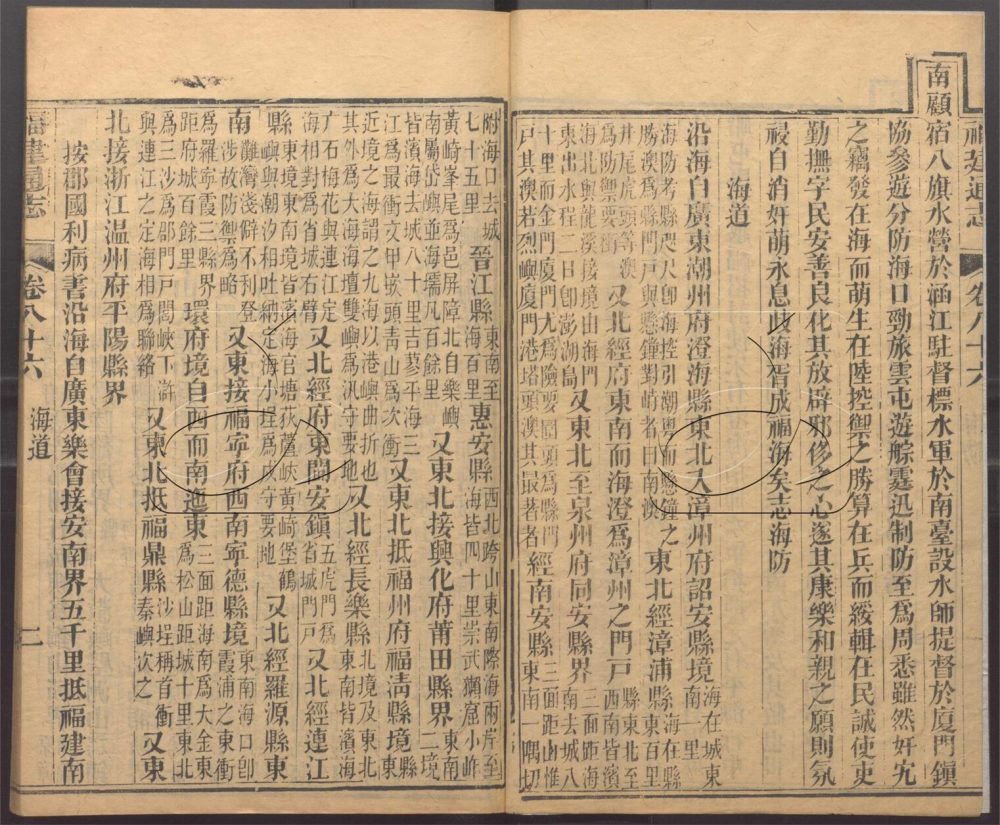 福建通志
卷八十六
南顧宿八旗水營於涵江駐督標水軍於南臺設水師提督於厦門鎭
協參遊分防海口勁旅雲屯遊艅霆迅制防至爲周悉雖然奸宄
之竊發在海而萌生在陸控禦之勝算在兵而綏輯在民誠使吏
勤撫字民安善良化其放辟邪侈之心遂其康樂和親之願則氛
祲自消奸萌永息歧海胥成福海矣志海防
海道
沿海自廣東潮州府澄海縣東北入漳州府詔安縣境海在城東南一里
海防考縣咫尺卽海控引潮粤而懸鐘之
勝澳爲縣門戸與懸鐘對峙者曰南澳東北經漳浦縣海在縣東百里縣東北至
井尾虎頭等澳西南皆濱
爲防禦要衝又北經府東南而海澄爲漳州之門戸三面距海
海北與龍溪接境由海門
東出水程二日卽澎湖島又東北至泉州府同安縣界南去城八
十里而金門厦門尤爲險要圍頭爲縣門
戸其澳若烈嶼厦門港塔頭澳其最著者經南安縣三面距山惟東南一隅切
附海口去城
七十五里晉江縣東南至海百里惠安縣西北跨山東南際海兩岸至海皆四十里崇武獺窟小岞
黄崎峯尾爲邑屏障北自樂嶼
南屬岱嶼並海壖凡百餘里又東北接興化府莆田縣界東南二境
皆濱海去城八十里吉蓼平海三
江爲最衝文甲嵌頭靑山爲次衝又東北抵福州府福淸縣境縣東
近境之海謂之九海以港嶼曲折也
其外爲大海海壇雙嶼爲汛守要地又北經長樂縣北境及東北東南皆濱海
广石梅花與連江定
海相對爲省城右臂又北經府東閩安鎭五虎門爲省城門戸又北經連江
縣東境東南境皆濱海官塘荻蘆峽黄崎堡鶴
嶼與潮汐相吐納定海小埕爲戍守要地又北經羅源縣東
南難灣淺僻不利登
涉故防禦爲略又東接福寧府西南寧德縣境東南海口卽霞浦之東衝
爲羅寧霞三縣界
距府城百餘里環府境自西而南迤東三面距海南爲大金東爲松山距城十里東北
爲三沙爲邵門戸閭峽下滸
與連江之定海相爲聯絡又東北抵福鼎縣沙埕稱首衝秦嶼次之又東
北接浙江溫州府平陽縣界
按郡國利病書沿海自廣東樂會接安南界五千里抵福建南
福建通志
卷八十六
海道
二